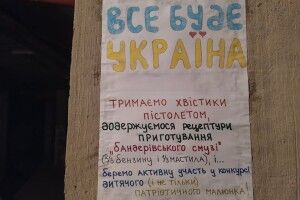 ВСЕ БУДЕ
УКРАЇНА
ТРИМАЄМО ХВІСТИКИ
ПІСТОЛЕТОМ,
ДОДЕРЖУЄМОСЯ РЕЦЕПТУРИ
ПРИГОТУВАННЯ
"БАНДЕРІВСЬКОГО СМУЗІ"
БЕНЗИНУ І МАСТИЛА), І...
БЕРЕМО АКТИВНУ УЧАСТЬ У КОНКУРСІ
ДИТЯЧОГО (І НЕ ТІЛЬКИ)
ПАТРІОТИЧНОГО МАЛЮНКА!